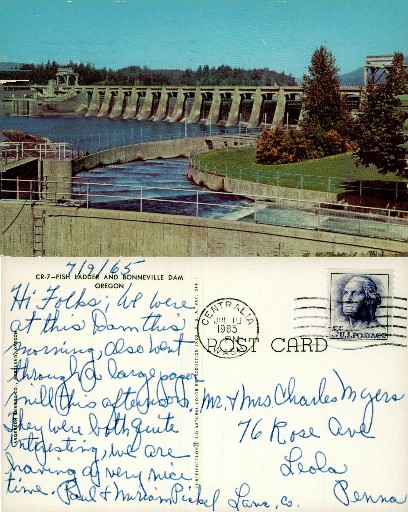 CR-7-FISH LADDER AND BONNEVILLE DAM
OREGON
7/9/65
Hi Folks; We were
at this Dam this
morning, also went
through a large paper
mill this afternoon.
They were both quite
interesting, we are
having a very nice
time. Paul & Miriam Pickel
CENTRALIA
JUL 10
1965
WASH.
5¢ U.S. POSTAGE
POST CARD
Mr. & Mrs Charles Myers
76 Rose Ave
Leola
Lanc. Co. Penna